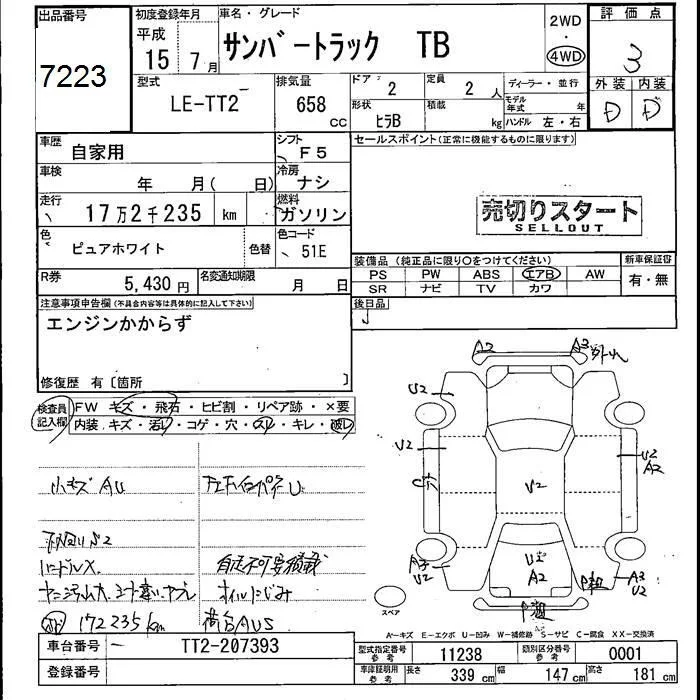 出品番号
7223
初度登録年月
平成
15年 7月
車名・グレード
サンバートラック TB
2WD
・
4WD
評価点
3
外装 内装
D D
型式
LE-TT2
排気量
658 CC
ドア
2
定員
2 人
ディーラー・並行
形状
ヒラB
積載
kg
モデル年式 年
ハンドル 左・右
車歴
自家用
シフト
F5
車検
年 月( 日)
冷房
ナシ
走行
17万2千235 km
燃料
ガソリン
色
ピュアホワイト
色替
色コード
51E
R券
5,430 円
名変通知期限
月 日
セールスポイント(正常に機能するものに限ります)
売切りスタート
SELLOUT
装備品 (純正品に限り○をつけてください)
新車保証書
PS PW ABS エアB AW
SR ナビ TV カワ
有・無
後日品
注意事項申告欄(不具合内容等は具体的に記入して下さい)
エンジンかからず
修復歴 有〔箇所 〕
検査員記入欄
FW キズ・飛石・ヒビ割・リペア跡・×要
内装 キズ・汚レ・コゲ・穴・スレ・キレ・破レ
小キズ AU
172235km
荷台AUS
自走不可要積載
オイルにじみ
A2
A3
U2
U2
U2
A2
U2
A2
A3
U2
A3
U2
スペア
A-キズ E-エクボ U-凹み W-補修跡 S-サビ C-腐食 XX-交換済
車台番号
TT2-207393
登録番号
型式指定番号 参考
11238
類別区分番号 参考
0001
車庫証明用 参考
長さ 339 cm
幅 147 cm
高さ 181 cm